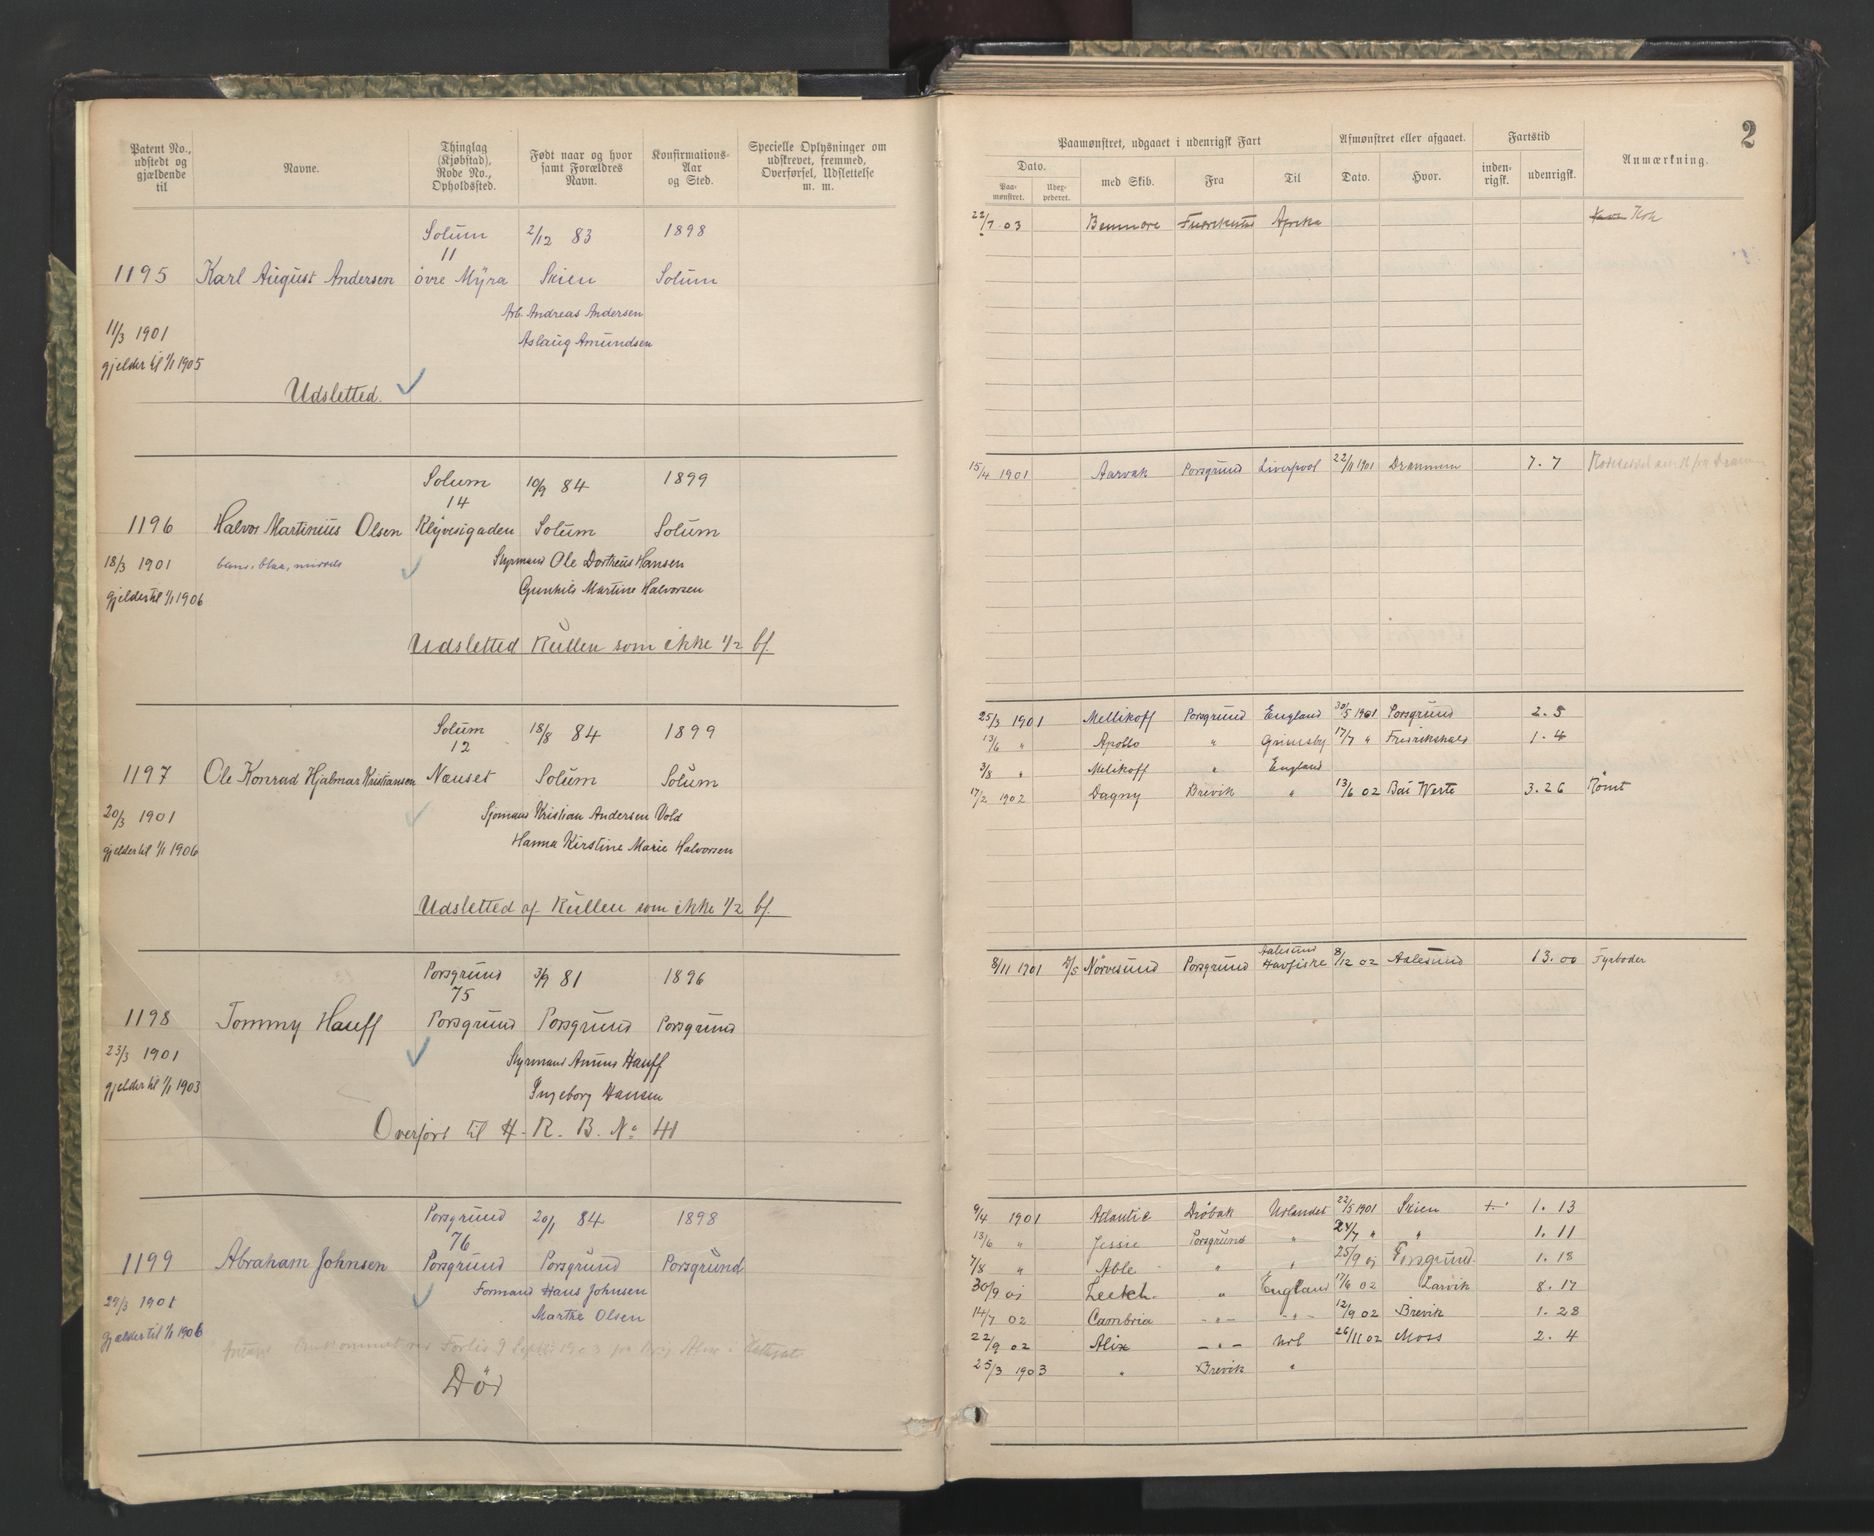 2
Patent No., udstedt og gjældende til
Navne.
Thinglag (Kjøbstad), Rode No., Opholdssted.
Født naar og hvor samt Forældres Navn.
Konfirmations-Aar og Sted.
Specielle Oplysninger om udskrevet, fremmed, Overførsel, Udslettelse m. m.
Paamønstret, udgaaet i udenrigsk Fart
Afmønstret eller afgaaet.
Fartstid
Anmærkning.
Dato.
med Skib.
Fra
Til
Dato.
Hvor.
inden-rigsk.
udenrigsk.
Paa-mønstret.
Solum 2/12 83 1898
11
1195 Karl August Andersen övre Myra Skien Solum
Arb. Andreas Andersen
11/3 1901 Aslaug Amundsen
gjelder til 1/1 1905
Udsletted.
22/7 03 Benmore Afrika Kok
Solum 10/9 84 1899
14
1196 Halvor Martinius Olsen Klyvesgaden Solum Solum
18/3 1901 Styrmand Ole Dortheus Hansen
gjelder til 1/1 1906 Gunhild Martine Halvorsen
Udsletted Rullen som ikke 1/2 bf.
15/4 1901 Aarvak Porsgrund Liverpool 22/11 1901 Drammen 7. 7
Solum 18/8 84 1899
12
1197 Ole Konrad Hjalmar Kristiansen Næuset Solum Solum
20/3 1901 Sjømand Kristian Andersen Vold
gjelder til 1/1 1906 Hanna Kirstine Marie Halvorsen
Udsletted af Rullen som ikke 1/2 bf.
25/3 1901 Mellikoff Porsgrund England 30/5 1901 Porsgrund 2. 5
13/6 " Apollo " Grimsby 17/7 " Fredrikshald 1. 4
3/8 " Melikoff " England
17/2 1902 Dagny Brevik " 13/6 02 Rømt 3. 26
Porsgrund 3/9 81 1896
75
1198 Tommy Hauff Porsgrund Porsgrund Porsgrund
23/3 1901 Styrmand Hauff
gjelder til 1/1 1903 Ingeborg Hansen
Overført til H. R. B. No 41
8/11 1901 Nørvesund Porsgrund Aalesund Havfiske 8/12 02 Aalesund 13. 00 Fyrbøder
Porsgrund 20/1 84 1898
76
1199 Abraham Johnsen Porsgrund Porsgrund Porsgrund
29/3 1901 Formand Hans Johnsen
gjælder til 1/1 1906 Marthe Olsen
Død
9/4 1901 Atlantic Drøbak Udlandet 22/5 1901 Skien 1. 13
13/6 " Jessie Porsgrund " 24/7 " " 1. 11
7/8 " Able " " 25/9 01 Porsgrund 1. 18
30/9 01 " England 17/6 02 Larvik 8. 17
14/7 02 Cambria -"- -"- 12/9 02 Brevik 1. 28
22/9 02 Alix -"- Udl 26/11 02 Moss 2. 4
25/3 1903 " Brevik "